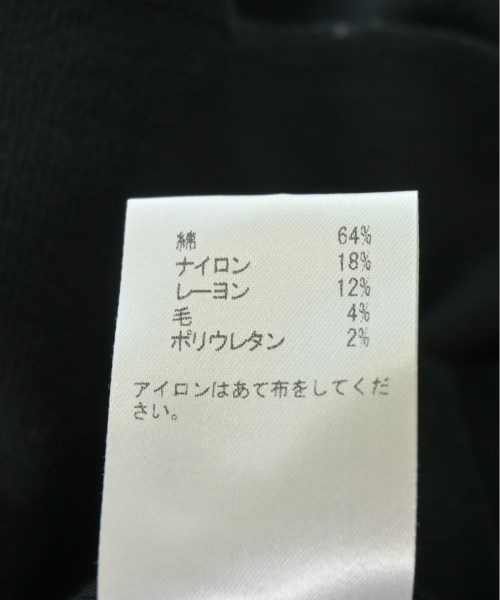 綿 64%
ナイロン 18%
レーヨン 12%
毛 4%
ポリウレタン 2%
アイロンはあて布をしてくだ
さい。